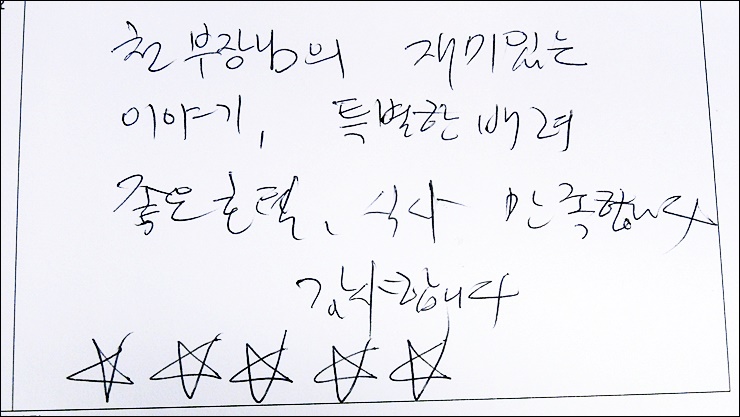 천 부장님의 재미있는
이야기, 특별한 배려
좋은 호텔, 식사 만족합니다
감사합니다